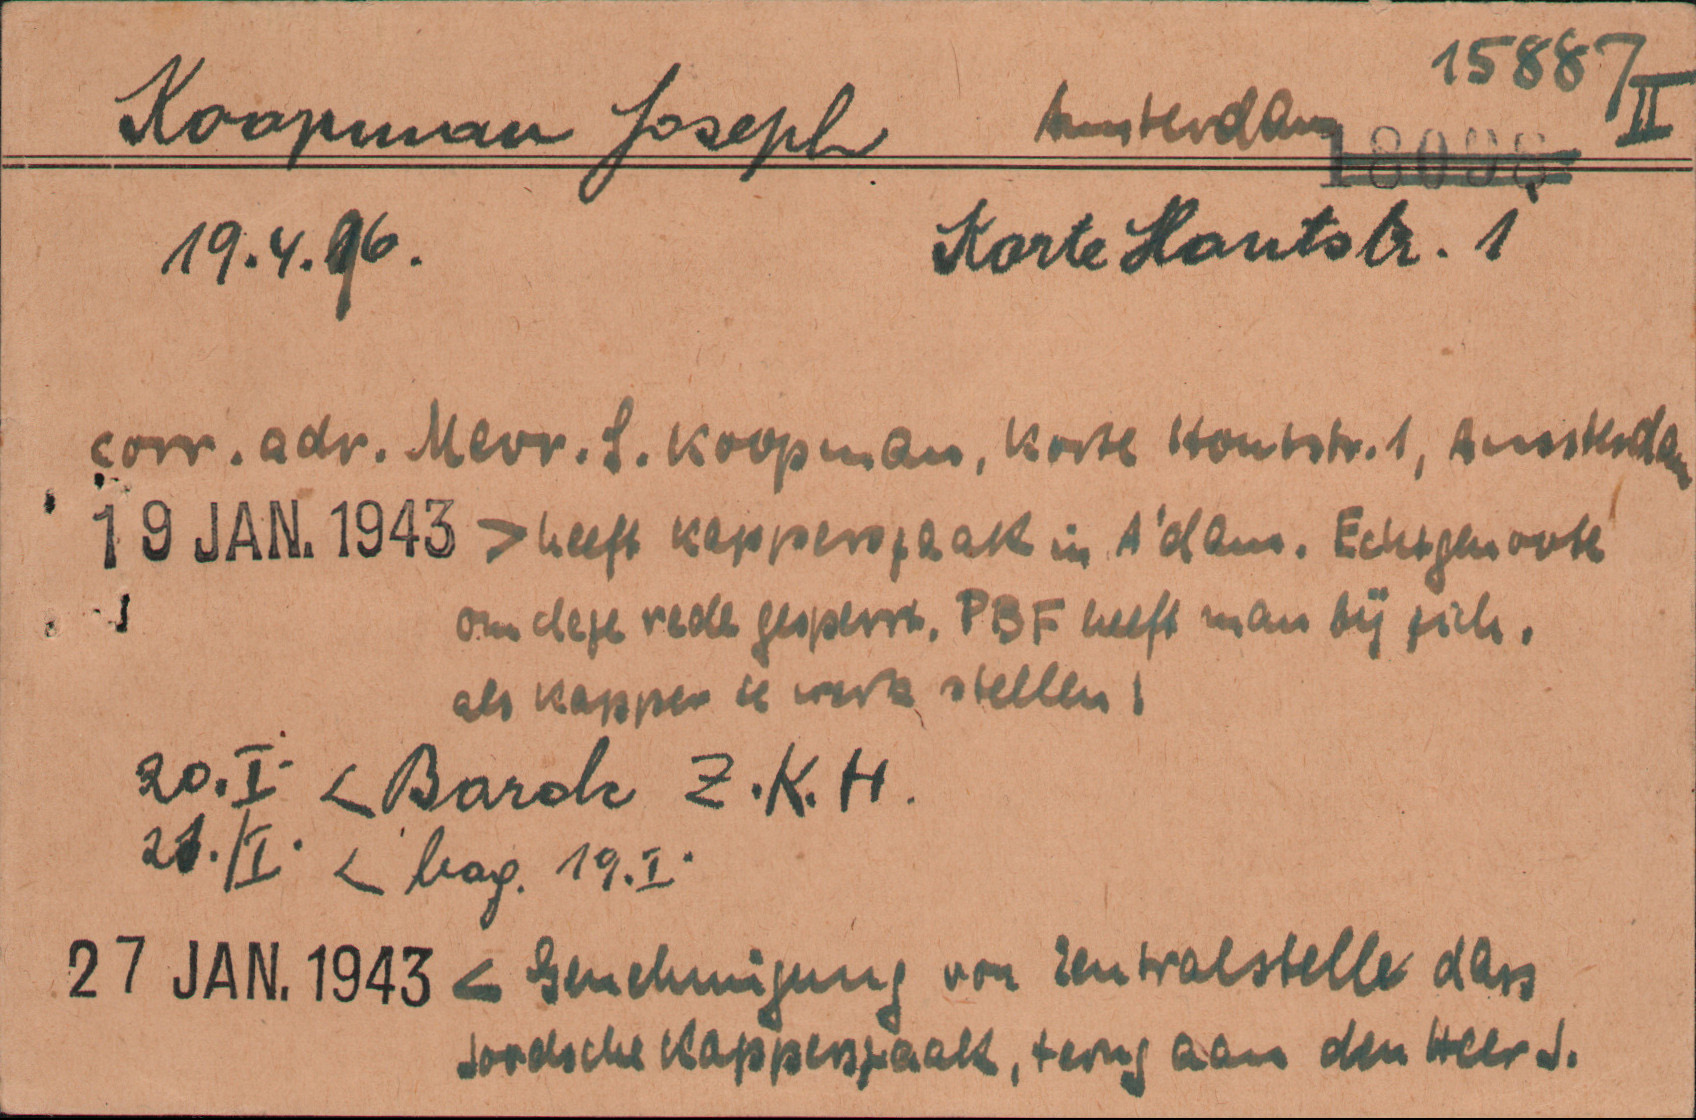 15887/II
Koopman Joseph Amsterdam
18098
19.4.96. Korte Houtstr. 1
corr. adr. Mevr. S. Koopman, Korte Houtstr. 1, Amsterdam
19 JAN. 1943 > heeft kapperszaak in A'dam. Echtgenoote
om deze rede gesperrt. PBF heeft man bij zich.
als kapper te werk stellen!
20.I. < Barak Z.K.H.
21./I. < bag. 19.I.
27 JAN. 1943 < Genehmigung von Zentralstelle dass
Joodsche Kapperszaak, terug aan den Heer J.